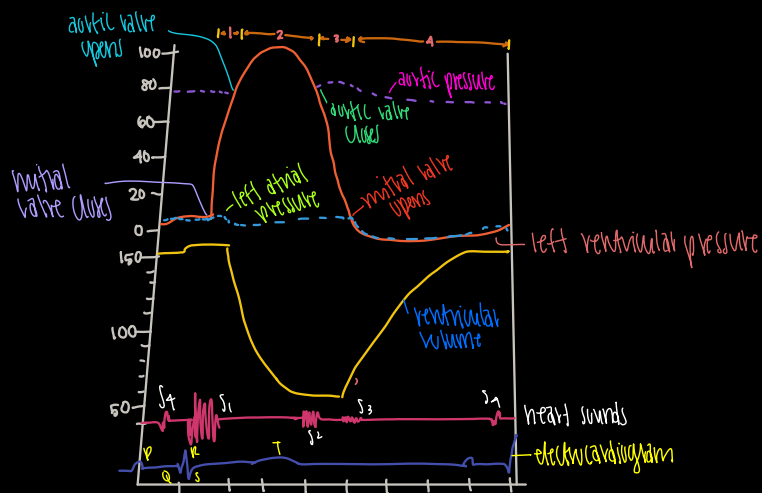 1 2 3 4
aortic valve
opens
100
80
60
40
20
0
aortic pressure
aortic valve
closes
mitral
valve closes
left atrial
pressure
mitral valve
opens
left ventricular pressure
150
100
50
ventricular
volume
S4 S1 S2 S3 S4
heart sounds
P Q R S T
electrocardiogram